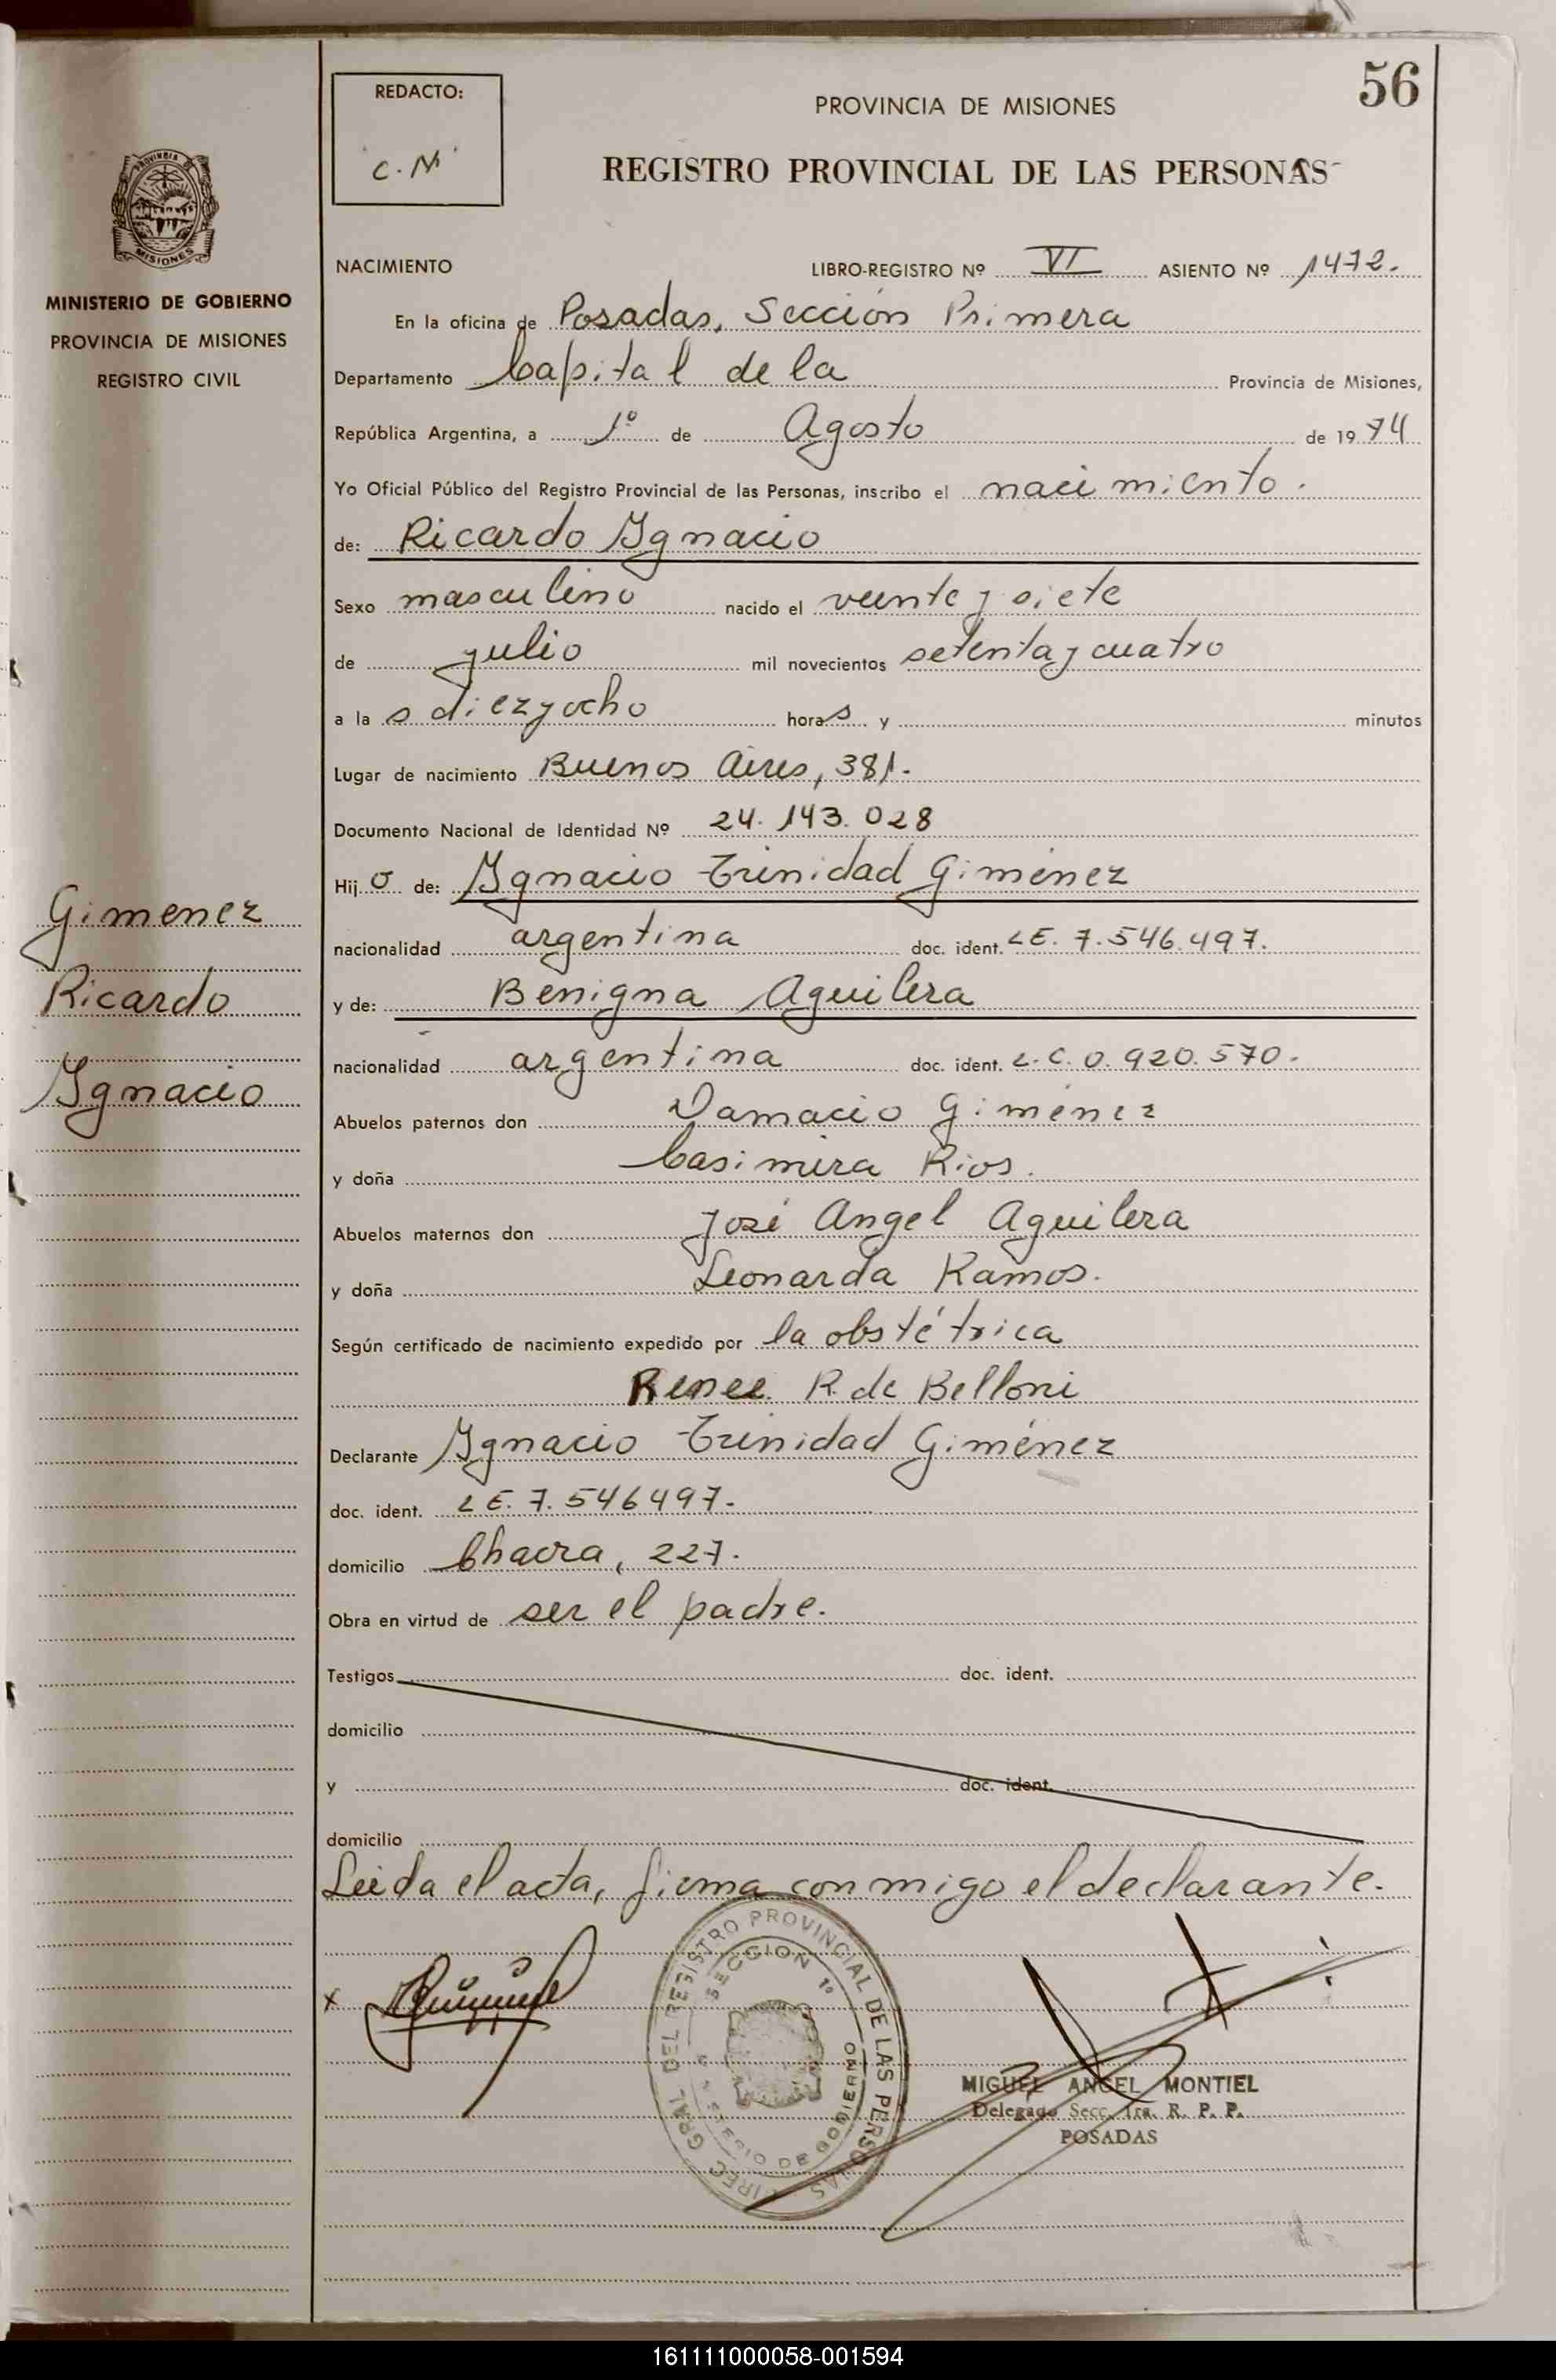 56
REDACTO:
C.N
PROVINCIA DE MISIONES
REGISTRO PROVINCIAL DE LAS PERSONAS
PROVINCIA DE
MISIONES
MINISTERIO DE GOBIERNO
PROVINCIA DE MISIONES
REGISTRO CIVIL
NACIMIENTO LIBRO-REGISTRO Nº VI ASIENTO Nº 1472.
En la oficina de Posadas, Sección Primera
Departamento Capital de la Provincia de Misiones,
República Argentina, a 1º de Agosto de 1974
Yo Oficial Público del Registro Provincial de las Personas, inscribo el nacimiento.
de: Ricardo Ygnacio
Sexo masculino nacido el veinte y siete
de julio mil novecientos setenta y cuatro
a las diez y ocho horas y minutos
Lugar de nacimiento Buenos Aires, 381.
Documento Nacional de Identidad Nº 24.143.028
Hijo de: Ygnacio Trinidad Giménez
nacionalidad argentina doc. ident. L.E. 7.546.497.
y de: Benigna Aguilera
nacionalidad argentina doc. ident. L.C. 0.920.570.
Abuelos paternos don Damacio Giménez
y doña Casimira Rios.
Abuelos maternos don José Angel Aguilera
y doña Leonarda Ramos.
Según certificado de nacimiento expedido por la obstétrica
Renee R. de Belloni
Declarante Ygnacio Trinidad Giménez
doc. ident. L.E. 7.546497.
domicilio Chacra, 227.
Obra en virtud de ser el padre.
Testigos doc. ident.
domicilio
y doc. ident.
domicilio
Leida el acta, firma conmigo el declarante.
Gimenez
Ricardo
Ygnacio
x
DIREC. GRAL DEL REGISTRO PROVINCIAL DE LAS PERSONAS
SECCION 1º
MINISTERIO DE GOBIERNO
MIGUEL ANGEL MONTIEL
Delegado Secc. 1ra. R. P. P.
POSADAS
161111000058-001594